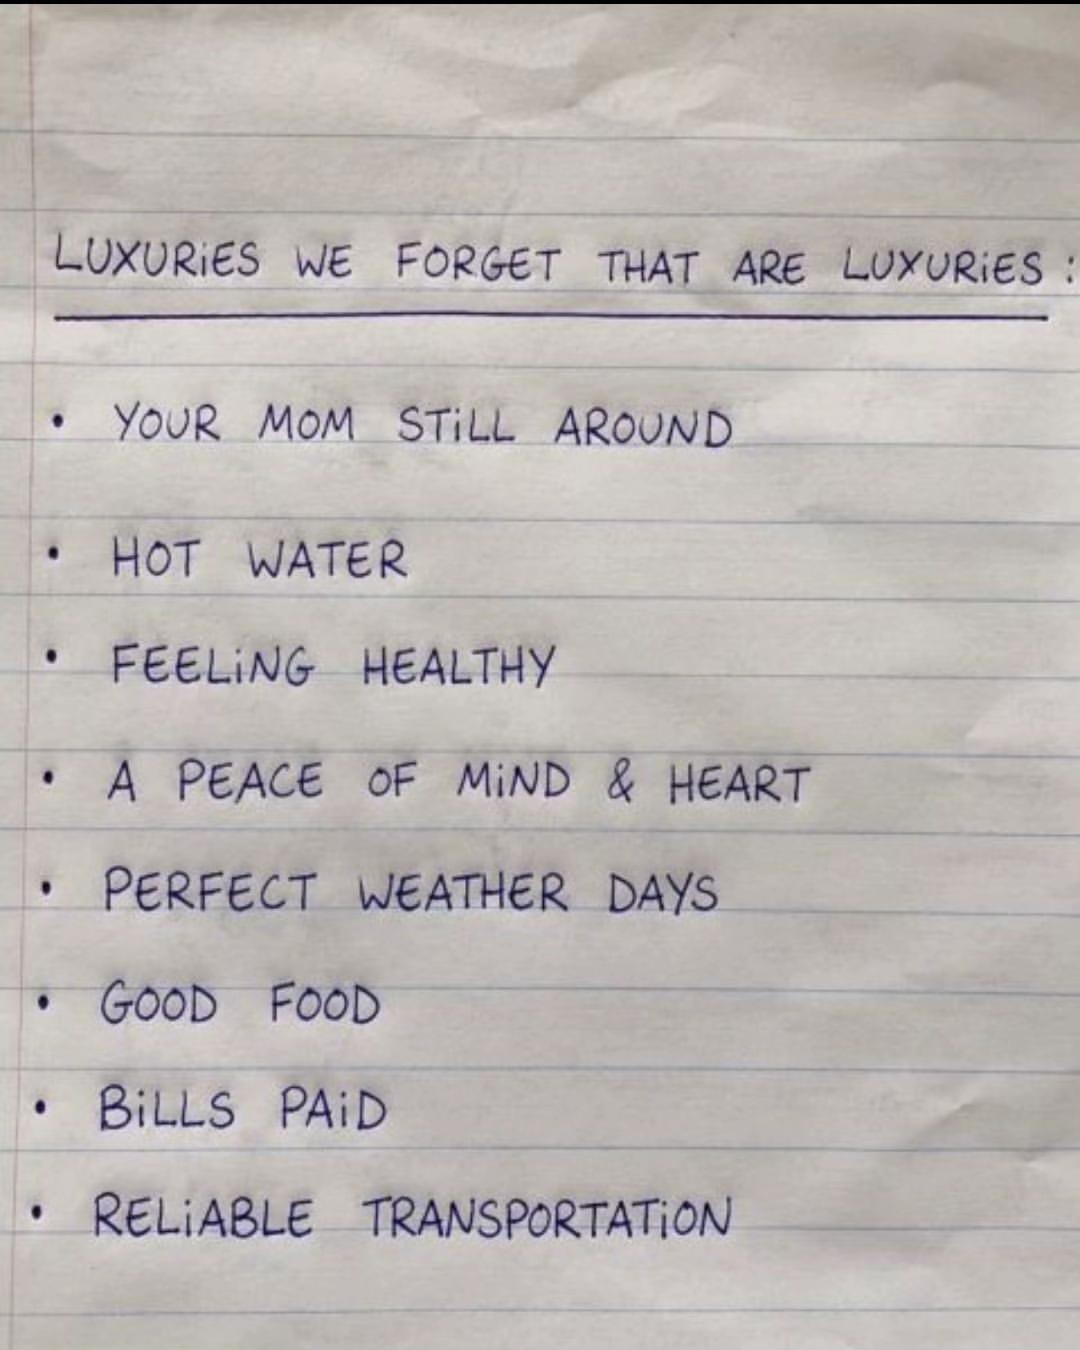 LUXURiES WE FORGET THAT ARE LUXURiES :
• YOUR MOM STiLL AROUND
• HOT WATER
• FEELiNG HEALTHY
• A PEACE OF MiND & HEART
• PERFECT WEATHER DAYS
• GOOD FOOD
• BiLLS PAiD
• RELiABLE TRANSPORTATiON